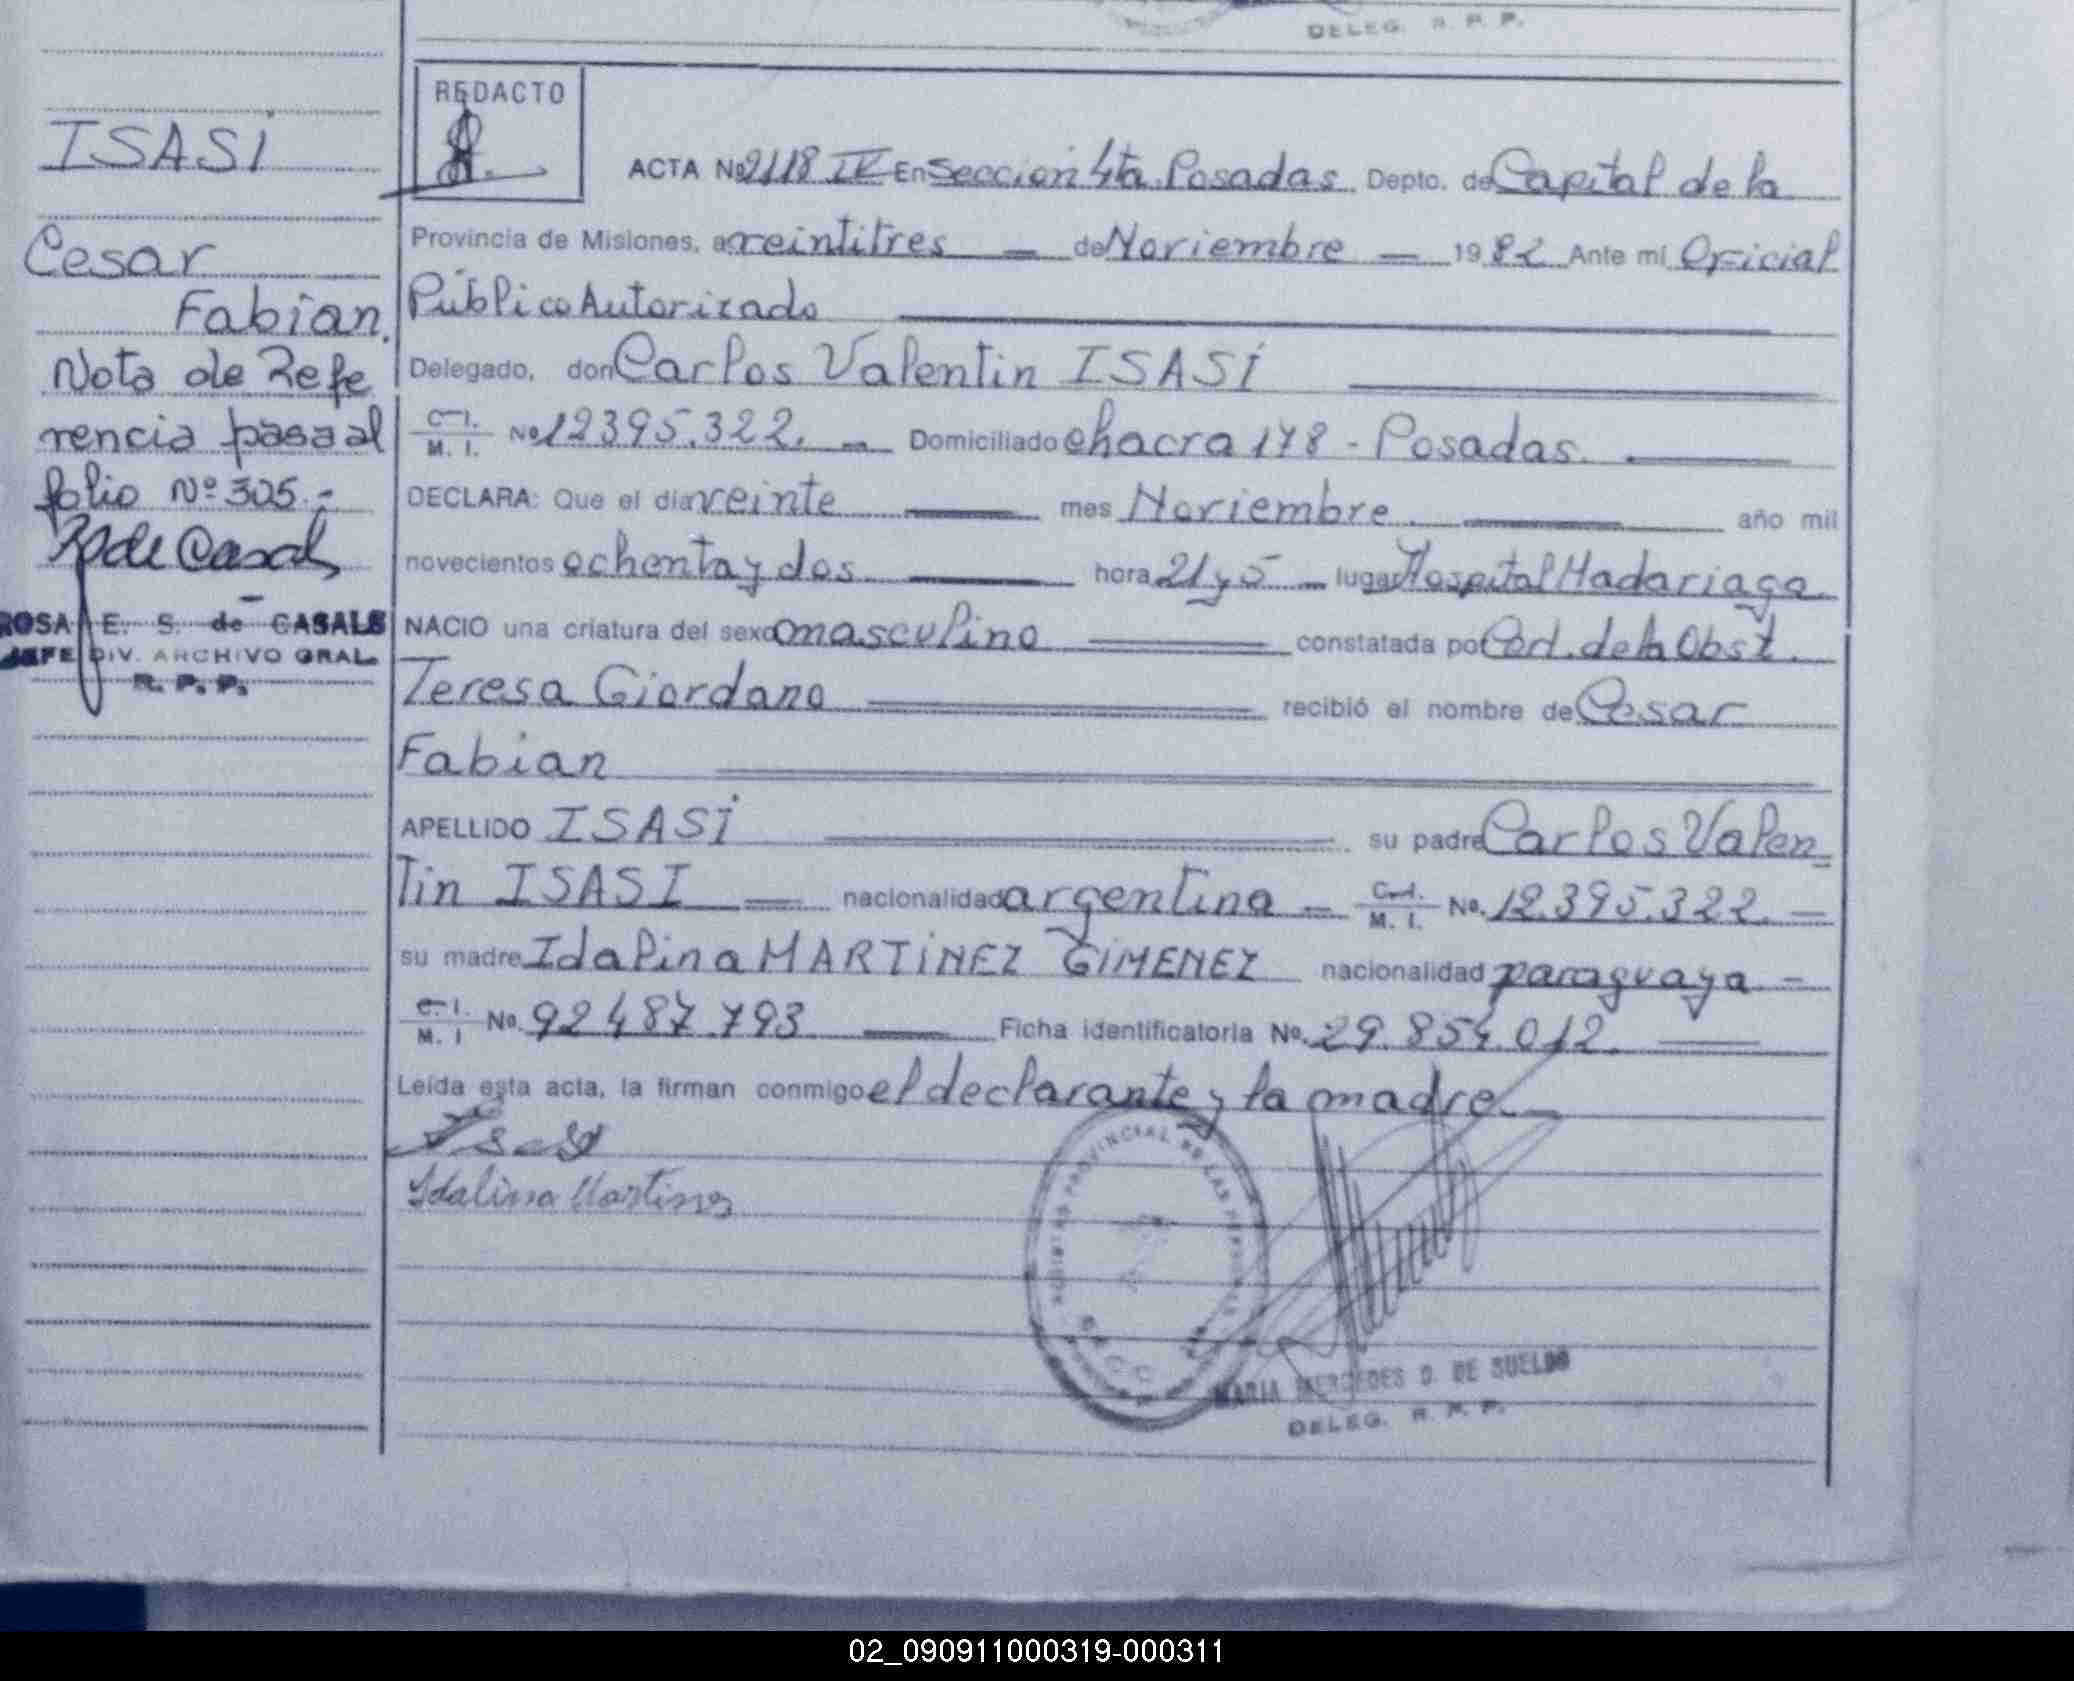 DELEG. R. P. P.
REDACTO
ISASI
Cesar
Fabian.
Nota de Refe
rencia pasa al
folio Nº 305.-
ROSA E. S. de CASALS
JEFE DIV. ARCHIVO GRAL.
R. P. P.
ACTA Nº 2118 IV En Sección 4ta. Posadas Depto. de Capital de la
Provincia de Misiones, a veintitres — de Noviembre — 1982 Ante mí Oficial
Público Autorizado
Delegado, don Carlos Valentin ISASI
C. I. M. I. Nº 12395.322. — Domiciliado chacra 178 - Posadas.
DECLARA: Que el día veinte mes Noviembre año mil
novecientos ochenta y dos hora 21 y 5 — lugar Hospital Madariaga
NACIO una criatura del sexo masculino constatada por Cert. de la Obst.
Teresa Giordano recibió el nombre de Cesar
Fabian
APELLIDO ISASI su padre Carlos Valen
tin ISASI nacionalidad argentina — C. I. M. I. No. 12.395.322. —
su madre Idalina MARTINEZ GIMENEZ nacionalidad paraguaya. —
C. I. M. I No. 92487.793 Ficha identificatoria No. 29.854.012.
Leída esta acta, la firman conmigo el declarante y la madre.
Idalina Martinez
REGISTRO PROVINCIAL DE LAS PERSONAS
MARIA MERCEDES D. DE SUELDO
DELEG. R. P. P.
02_090911000319-000311